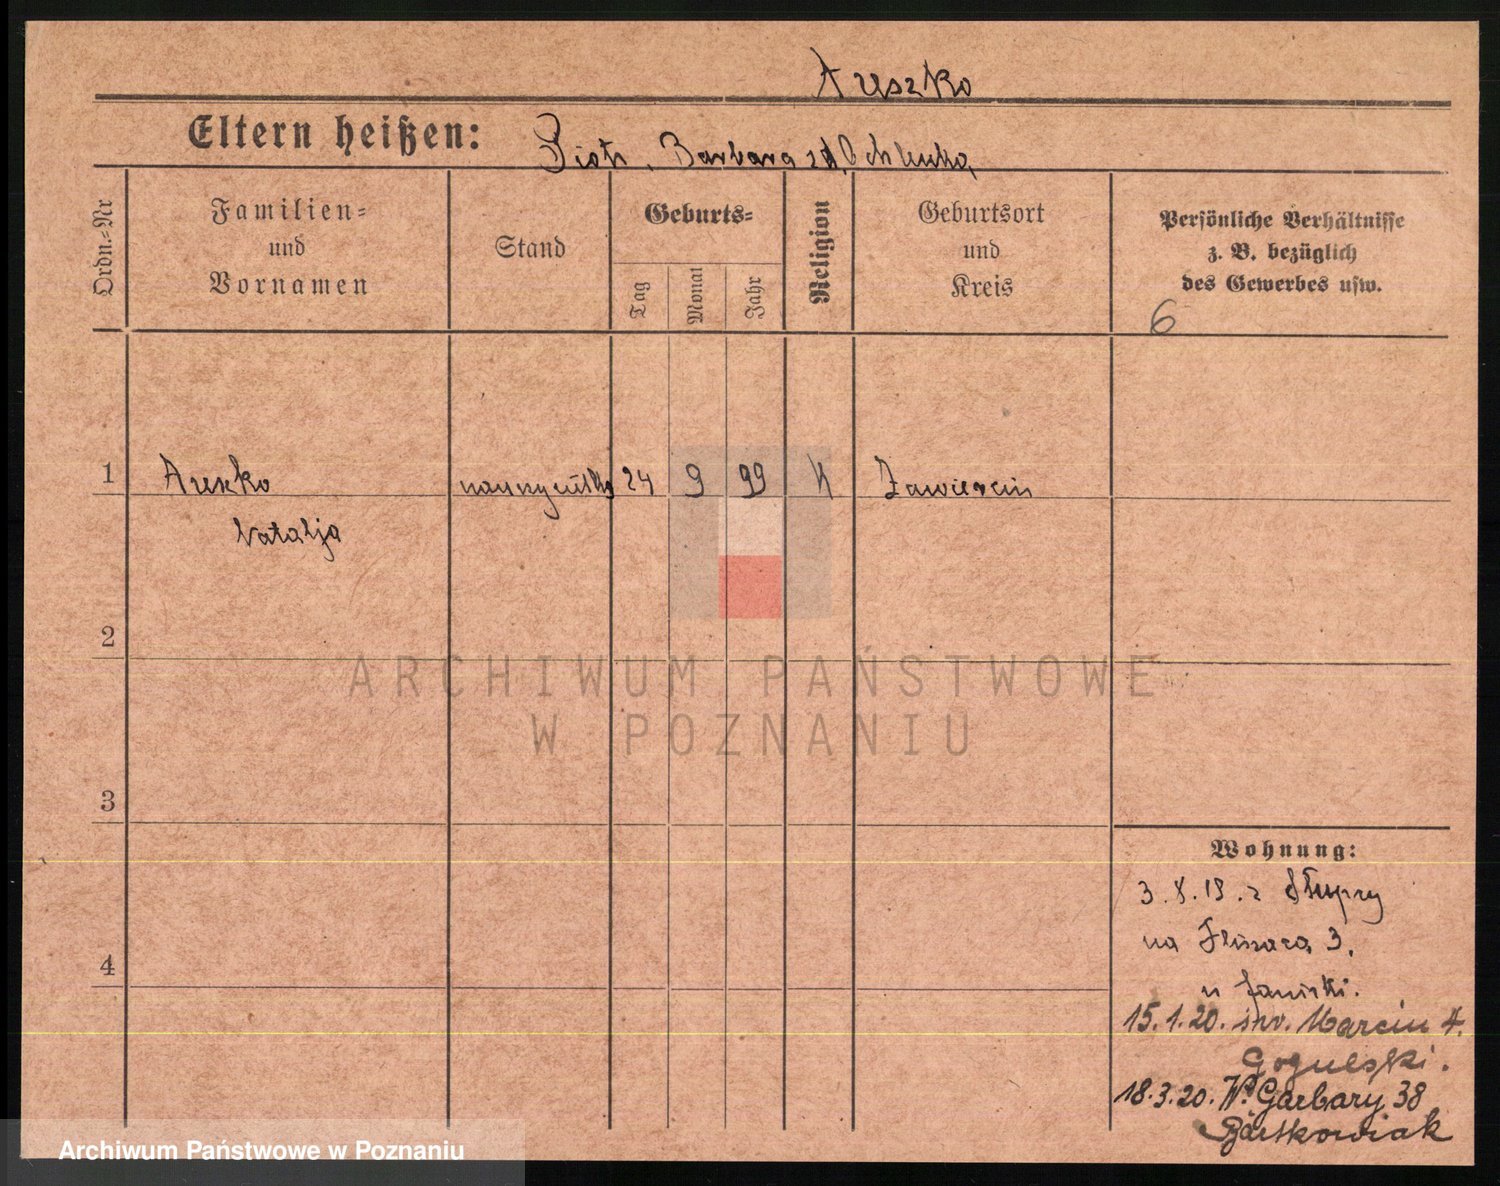 Aruszko
Eltern heißen: Piotr, Barbara zd.
Ordn.=Nr
Familien=
und
Vornamen
Stand
Geburts=
Tag
Monat
Jahr
Religion
Geburtsort
und
Kreis
Persönliche Verhältnisse
z. B. bezüglich
des Gewerbes usw.
6
1 nauczycielka 24 9 99 K Zawiercie
Natalja
2
ARCHIWUM PAŃSTWOWE
W POZNANIU
3
Wohnung:
3.X.19. z Słupcy
na 3.
4
u
15.1.20. św. Marcin 4.
Gogulski.
18.3.20. W. Garbary 38
Bartkowiak
Archiwum Państwowe w Poznaniu